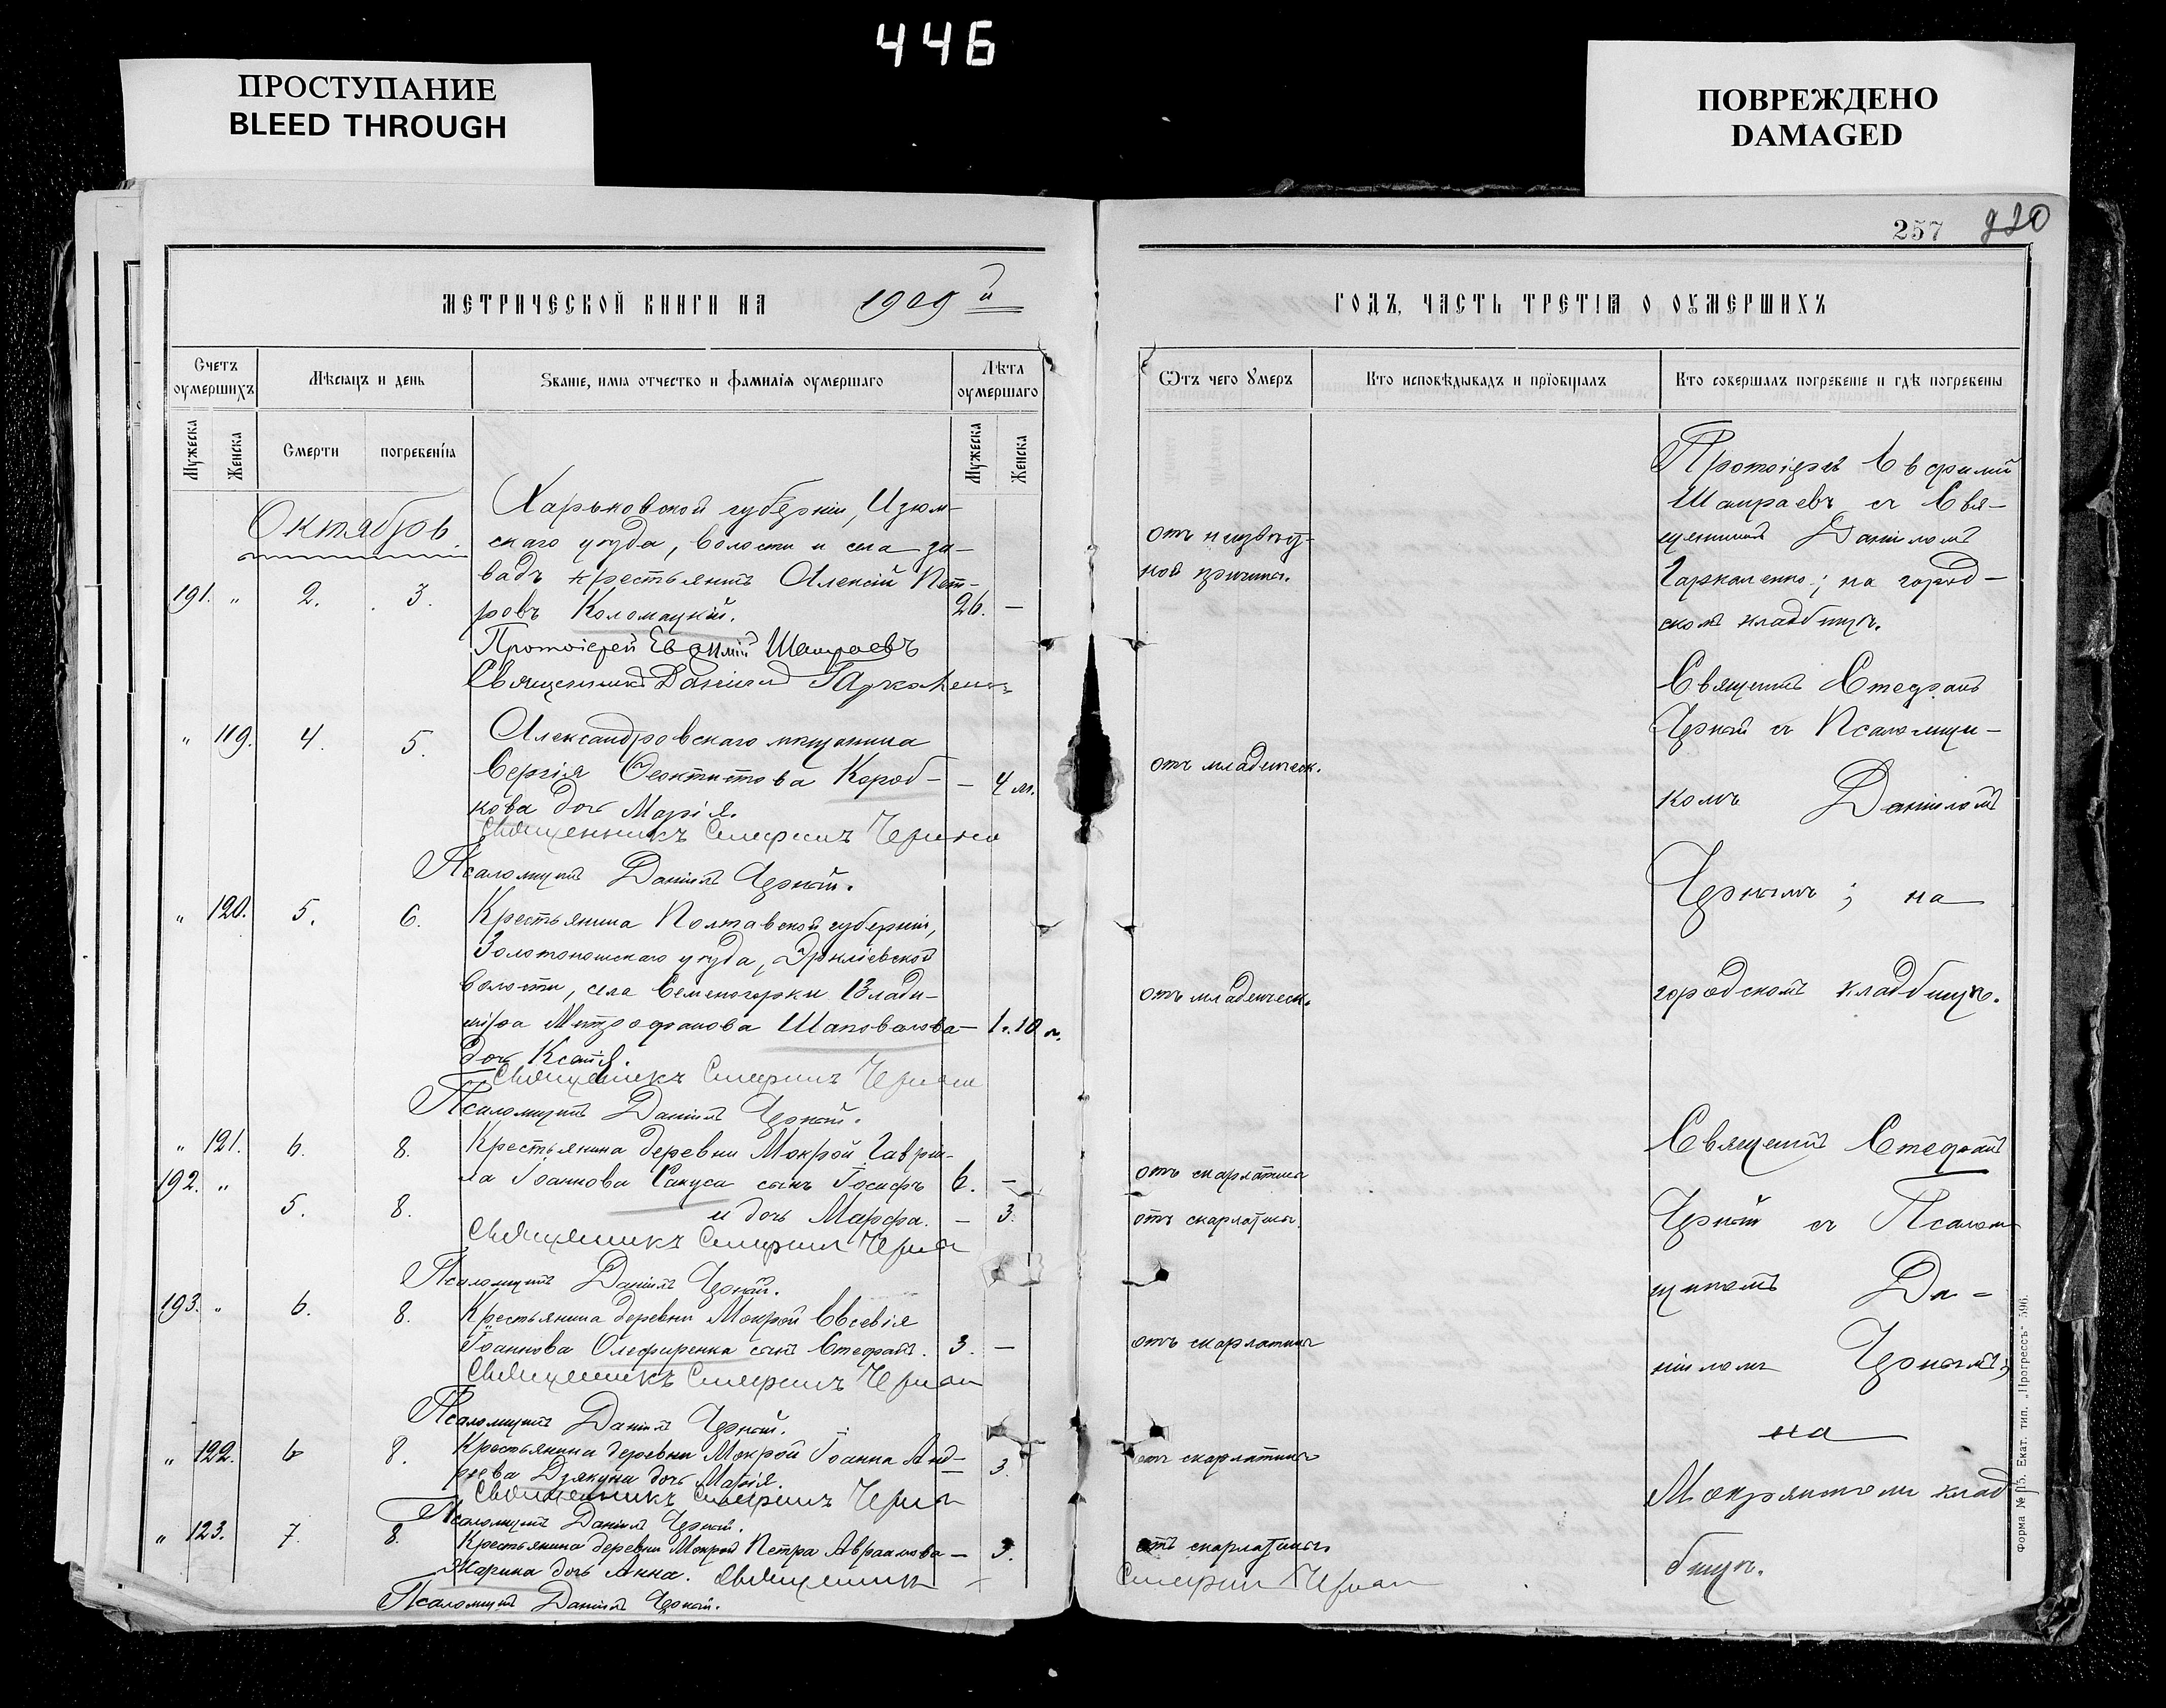 446
ПРОСТУПАНИЕ
BLEED THROUGH
ПОВРЕЖДЕНО
DAMAGED
257
МЕТРИЧЕСКОЙ КНИГИ НА 1909 й
Счетъ оумершихъ
Мѣсяцъ и день
Званіе, имя отчество и фамилія оумершаго
Лѣта оумершаго
Мужеска
Женска
Смерти
погребенія
Мужеска
Женска
Октябрь.
Харьковской губерніи, Изюм-
скаго уѣзда, волости и села за-
вадъ крестьянинъ Алексій Пет-
191. „ 2. 3. ровъ Коломацкій. 26. —
Протоіерей Евфимій Шамраевъ
Священникъ Даніилъ Гаркаленко
„ 119. 4. 5. Александровскаго мѣщанина
Сергія Феоктистова Короб- — 4 м.
кова дочь Марія.
Священникъ Стефанъ Черный
Псаломщикъ Даніилъ Черный.
„ 120. 5. 6. Крестьянина Полтавской губерніи,
Золотоношскаго уѣзда, Ирклiевской
волости, села Семеногорки Влади-
міра Митрофанова Шаповалова — 1 г. 10 м.
дочь Ксенія.
Священникъ Стефанъ Черный
Псаломщикъ Даніилъ Черный.
„ 121. 6. 8. Крестьянина деревни Мокрой Гаврiи-
192. „ ла Іоаннова Сакуса сынъ Іосифъ 6. —
5. 8. и дочь Марфа. — 3.
Священникъ Стефанъ Черный
Псаломщикъ Даніилъ Черный.
193. „ 6. 8. Крестьянина деревни Мокрой Евсевія
Іоаннова Олефиренка сынъ Стефанъ. 3. —
Священникъ Стефанъ Черный
Псаломщикъ Даніилъ Черный.
„ 122. 6 8. Крестьянина деревни Мокрой Іоанна Анд-
реева Дзякуна дочь Марія. — 3.
Священникъ Стефанъ Черный
Псаломщикъ Даніилъ Черный.
„ 123. 7. 8. Крестьянина деревни Мокрой Петра Авраамова — 3.
дочь Анна. Священникъ
Псаломщикъ Даніилъ Черный.
ГОДЪ, ЧАСТЬ ТРЕТІЯ О ОУМЕРШИХЪ
Отъ чего умеръ
Кто исповѣдывалъ и пріобщалъ
Кто совершалъ погребеніе и гдѣ погребены
отъ неизвѣст-
ной причины.
отъ младенческ.
отъ младенческ.
отъ скарлатины
отъ скарлатины.
отъ скарлатины
отъ скарлатины
отъ скарлатины
Стефанъ Черный
Протоіерей Евфимій
Шамраевъ съ Свя-
щенникомъ Даніиломъ
Гаркаленко; на город-
скомъ кладбищѣ.
Священникъ Стефанъ
Черный съ Псаломщи-
комъ Даніиломъ
Чернымъ; на
городскомъ кладбищѣ.
Священникъ Стефанъ
Черный съ Псалом
щикомъ Да-
ніиломъ Чернымъ;
на
Мокрянскомъ клад
бищѣ.
Форма № 15. Екат. тип. „Прогрессъ“ 596.